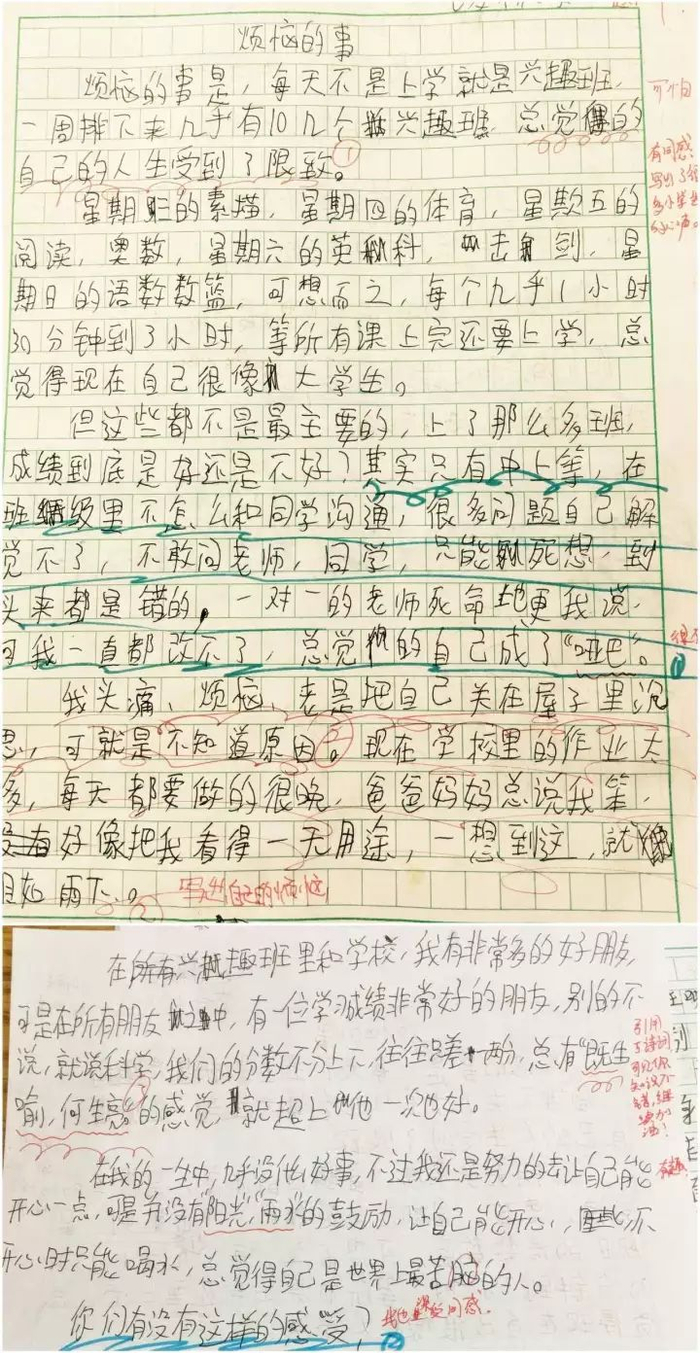 烦恼的事
烦恼的事是，每天不是上学就是兴趣班，
一周排下来几乎有10几个兴趣班，总觉得的
自己的人生受到了限致。
星期三的素描，星期四的体育，星期五的
阅读，奥数，星期六的英科，击剑，星
期日的语数数篮，可想而之，每个几乎1小时
30分钟到3小时，等所有课上完还要上学，总
觉得现在自己很像大学生。
但这些都不是最主要的，上了那么多班，
成绩到底是好还是不好？其实只有中上等，在
班级里不怎么和同学沟通，很多问题自己解
觉不了，不敢问老师，同学，只能死想，到
头来都是错的，一对一的老师死命地更我说，
可我一直都改不了，总觉的自己成了“哑巴”。
我头痛、烦恼、老是把自己关在屋子里沉
思，可就是不知道原因。现在学校里的作业太
多，每天都要做的很晚，爸爸妈妈总说我笨，
好像把我看得一无用途，一想到这，就像
如雨下。
写出自己的烦恼
可怕
有同感，
写出了很
多小学生
的心声。
在所有兴趣班里和学校，我有非常多的好朋友，
可是在所有朋友之中，有一位学习成绩非常好的朋友，别的不
说，就说科学，我们的分数不分上下，往往只差一两分，总有“既生
喻，何生亮”的感觉，就超上他一次也好。
引用
了诗词
可见你
知识不
错，继
续加
油！
在我的一生中，几乎没什么好事，不过我还是努力的去让自己能
开心一点，可是并没有“阳光”“雨水”的鼓励，让自己能开心，不
开心时只能喝水，总觉得自己是世界上最苦脑的人。
你们有没有这样的感受？
我也有同感。